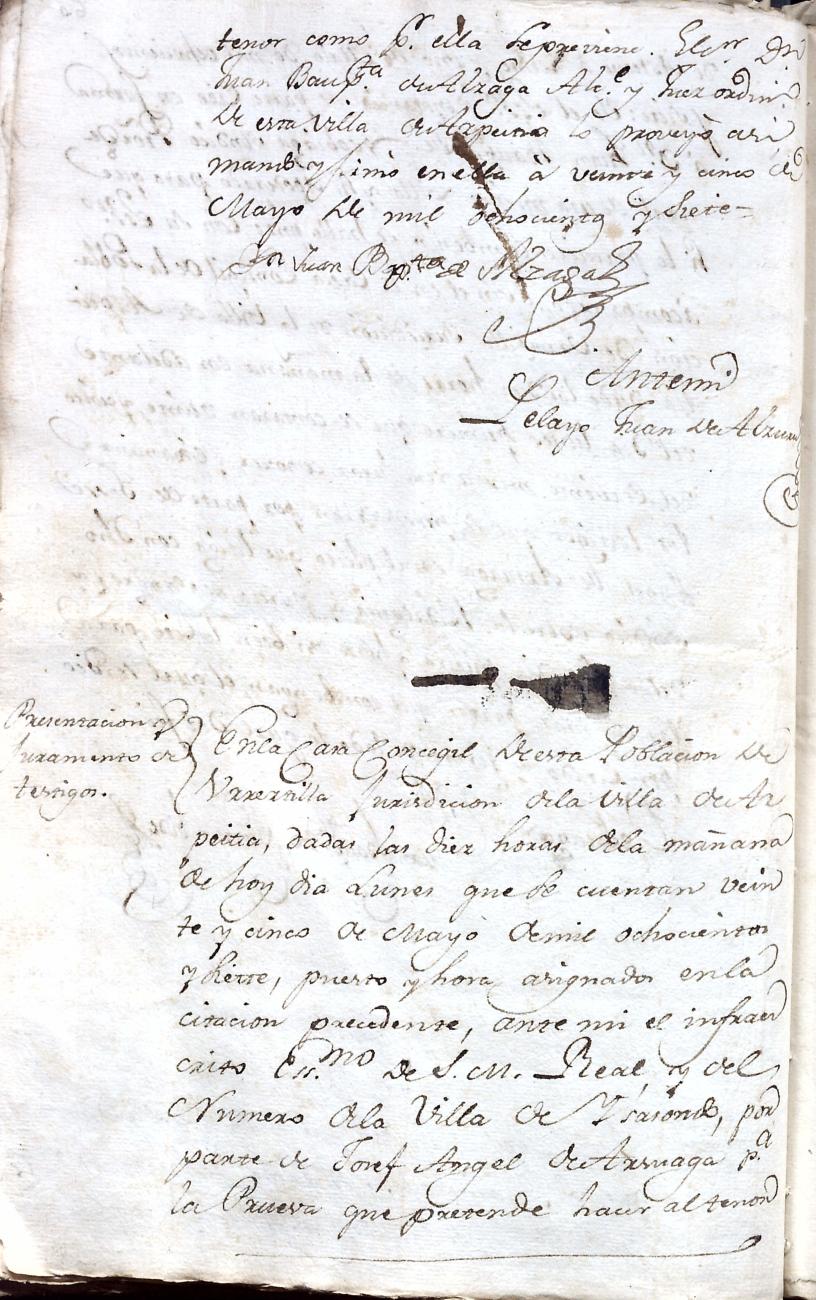 tenor como pr. ella se previene. El Sr. Dn.
Juan Baupta. de Alzaga Alce. y Juez ordino.
de esta villa de Azpeitia lo proveyò asi
mandò y firmò en ella à veinte y cinco de
Mayo de mil ochocientos y siete=
Dn Juan Bapta. de Alzaga
Antemi
Pelayo Juan de
Presentacion y
Juramento de
testigos.
En la Casa Concegil de esta Poblacion de
Vrrestilla Jurisdicion de la villa de Az
peitia, dadas las diez horas de la mañana
de hoy dia Lunes que se cuentan vein
te y cinco de Mayo de mil ochocientos
y siette, puesto y hora asignados en la
citacion precedente, ante mi el infraes
crito Ess.mo de S. M. Real, y del
Numero de la Villa de Ysasondo, por
parte de Josef Angel de Arsuaga pa.
la Prueva que pretende hacer al tenor